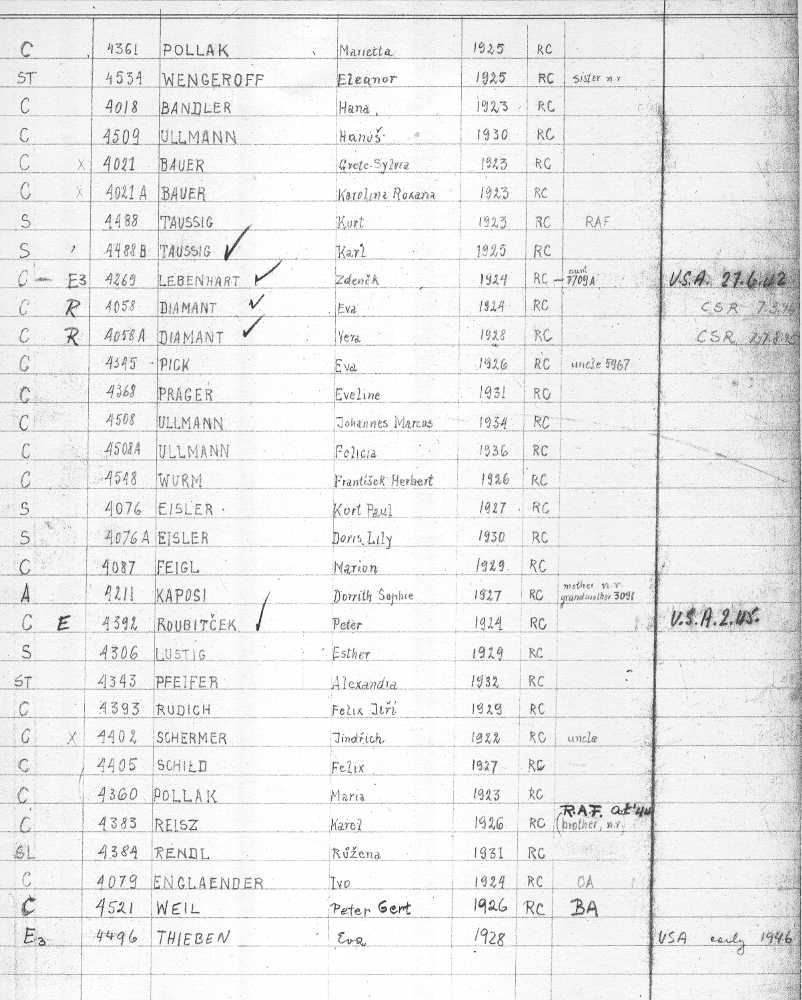 C 4361 POLLAK Marietta 1925 RC
ST 4534 WENGEROFF Eleanor 1925 RC Sister n.r
C 4018 BANDLER Hana 1923 RC
C 4509 ULLMANN Hanuš 1930 RC
C X 4021 BAUER Grete-Sylvia 1923 RC
C X 4021 A BAUER Karolina Roxana 1923 RC
S 4488 TAUSSIG Kurt 1923 RC RAF
S 4488 B TAUSSIG ✓ Karl 1925 RC
C – E3 4269 LEBENHART ✓ Zdeněk 1924 RC – aunt 7709A U.S.A. 27.6.42
C R 4058 DIAMANT ✓ Eva 1924 RC CSR
C R 4058 A DIAMANT ✓ Vera 1928 RC CSR
C 4345 PICK Eva 1926 RC uncle 5967
C 4368 PRAGER Eveline 1931 RC
C 4508 ULLMANN Johannes Marcus 1934 RC
C 4508A ULLMANN Felicia 1936 RC
C 4548 WURM František Herbert 1926 RC
S 4076 EISLER Kurt Paul 1927 RC
S 4076 A EISLER Doris Lily 1930 RC
C 4087 FEIGL Marion 1929 RC
A 4211 KAPOSI Dorrith Sophie 1927 RC mother n.r grandmother 3091
C E 4392 ROUBITČEK ✓ Peter 1924 RC U.S.A. 2.45.
S 4306 LUSTIG Esther 1929 RC
ST 4343 PFEIFER Alexandra 1932 RC
C 4393 RUDICH Felix Jiří 1929 RC
C X 4402 SCHERMER Jindřich 1922 RC uncle
C 4405 SCHILD Felix 1927 RC
C 4360 POLLAK Maria 1923 RC
C 4383 REISZ Karel 1926 RC R.A.F. Oct '44 (brother, n.r)
SL 4384 RENDL Růžena 1931 RC
C 4079 ENGLAENDER Ivo 1924 RC OA
C 4521 WEIL Peter Gert 1926 RC BA
E3 4496 THIEBEN Eva 1928 USA early 1946